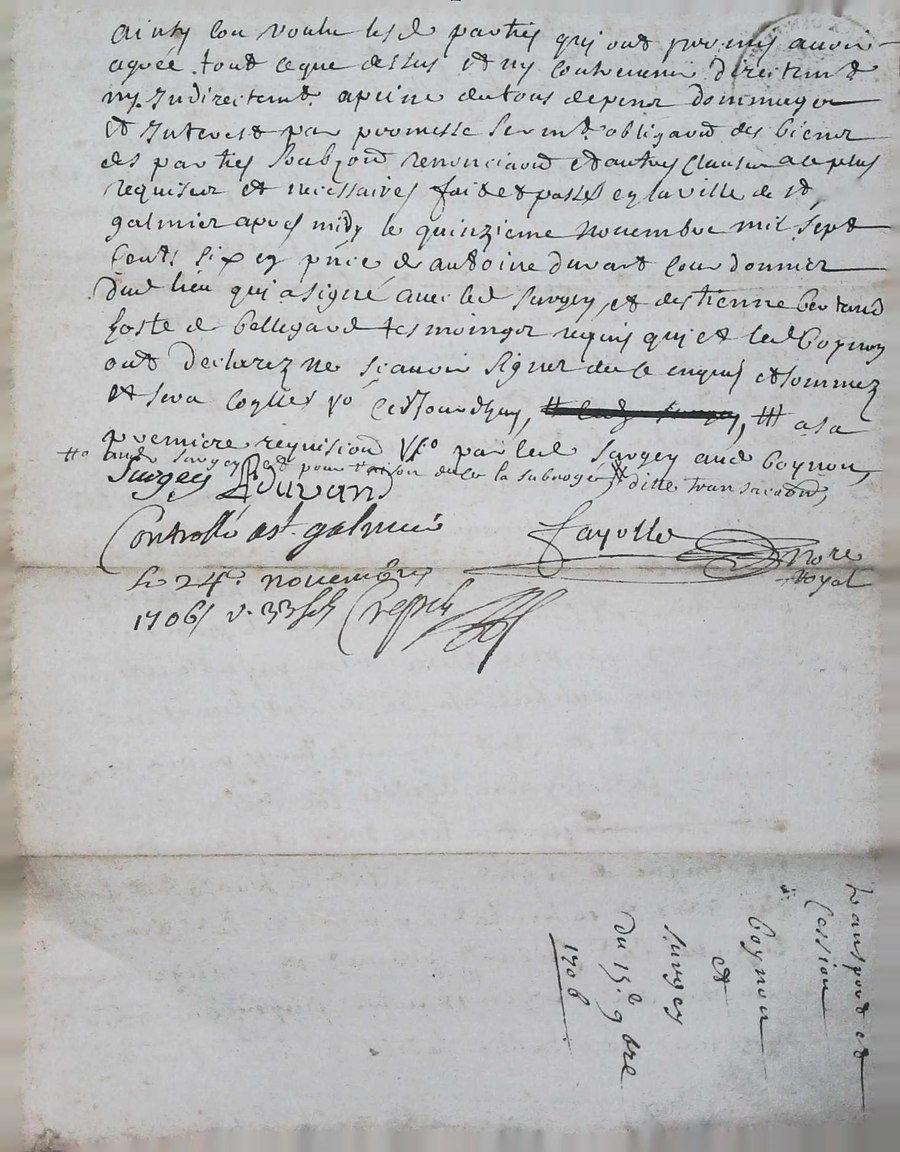 ainsy lon voulu lesd parties qui ont promis avoir
agréé tout ce que dessus et ny contrevenir directemt
ny Indirectemt apeine de tous despens dommages
et Interests par promesse sermt obligaond des biens
des parties soubzond renonciaond et autres clauses a ce plus
requises et necessaires fait et passé en la ville de st
galmier apres midy le quinzieme novembre mil sept
cents six en pnce de antoine durant cour donnier
dud lieu qui a signé avec led Surgey, et destienne bertrand
hoste de bellegarde tesmoingz requis qui et led Coynon
ont declarez ne scavoir signer de ce enquis et sommez
et sera Jourdhuy, a sa
premiere requisiond par led Surgey aud Coynon,
aud Surgey pour raison de la ditte transacond,
Surgey Durand
Controllé a st galmier
Fayolle nore
royal
le 24e novembre
1706 Crespet
transport et
Cession
Coynon
et
Surgey
du 15e 9bre
1706